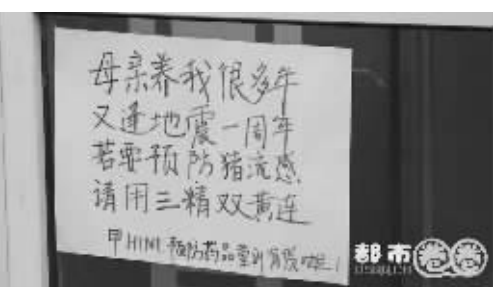 母亲养我很多年
又逢地震一周年
若要预防猪流感
请用三精双黄连
甲H1N1.预防药品
都市